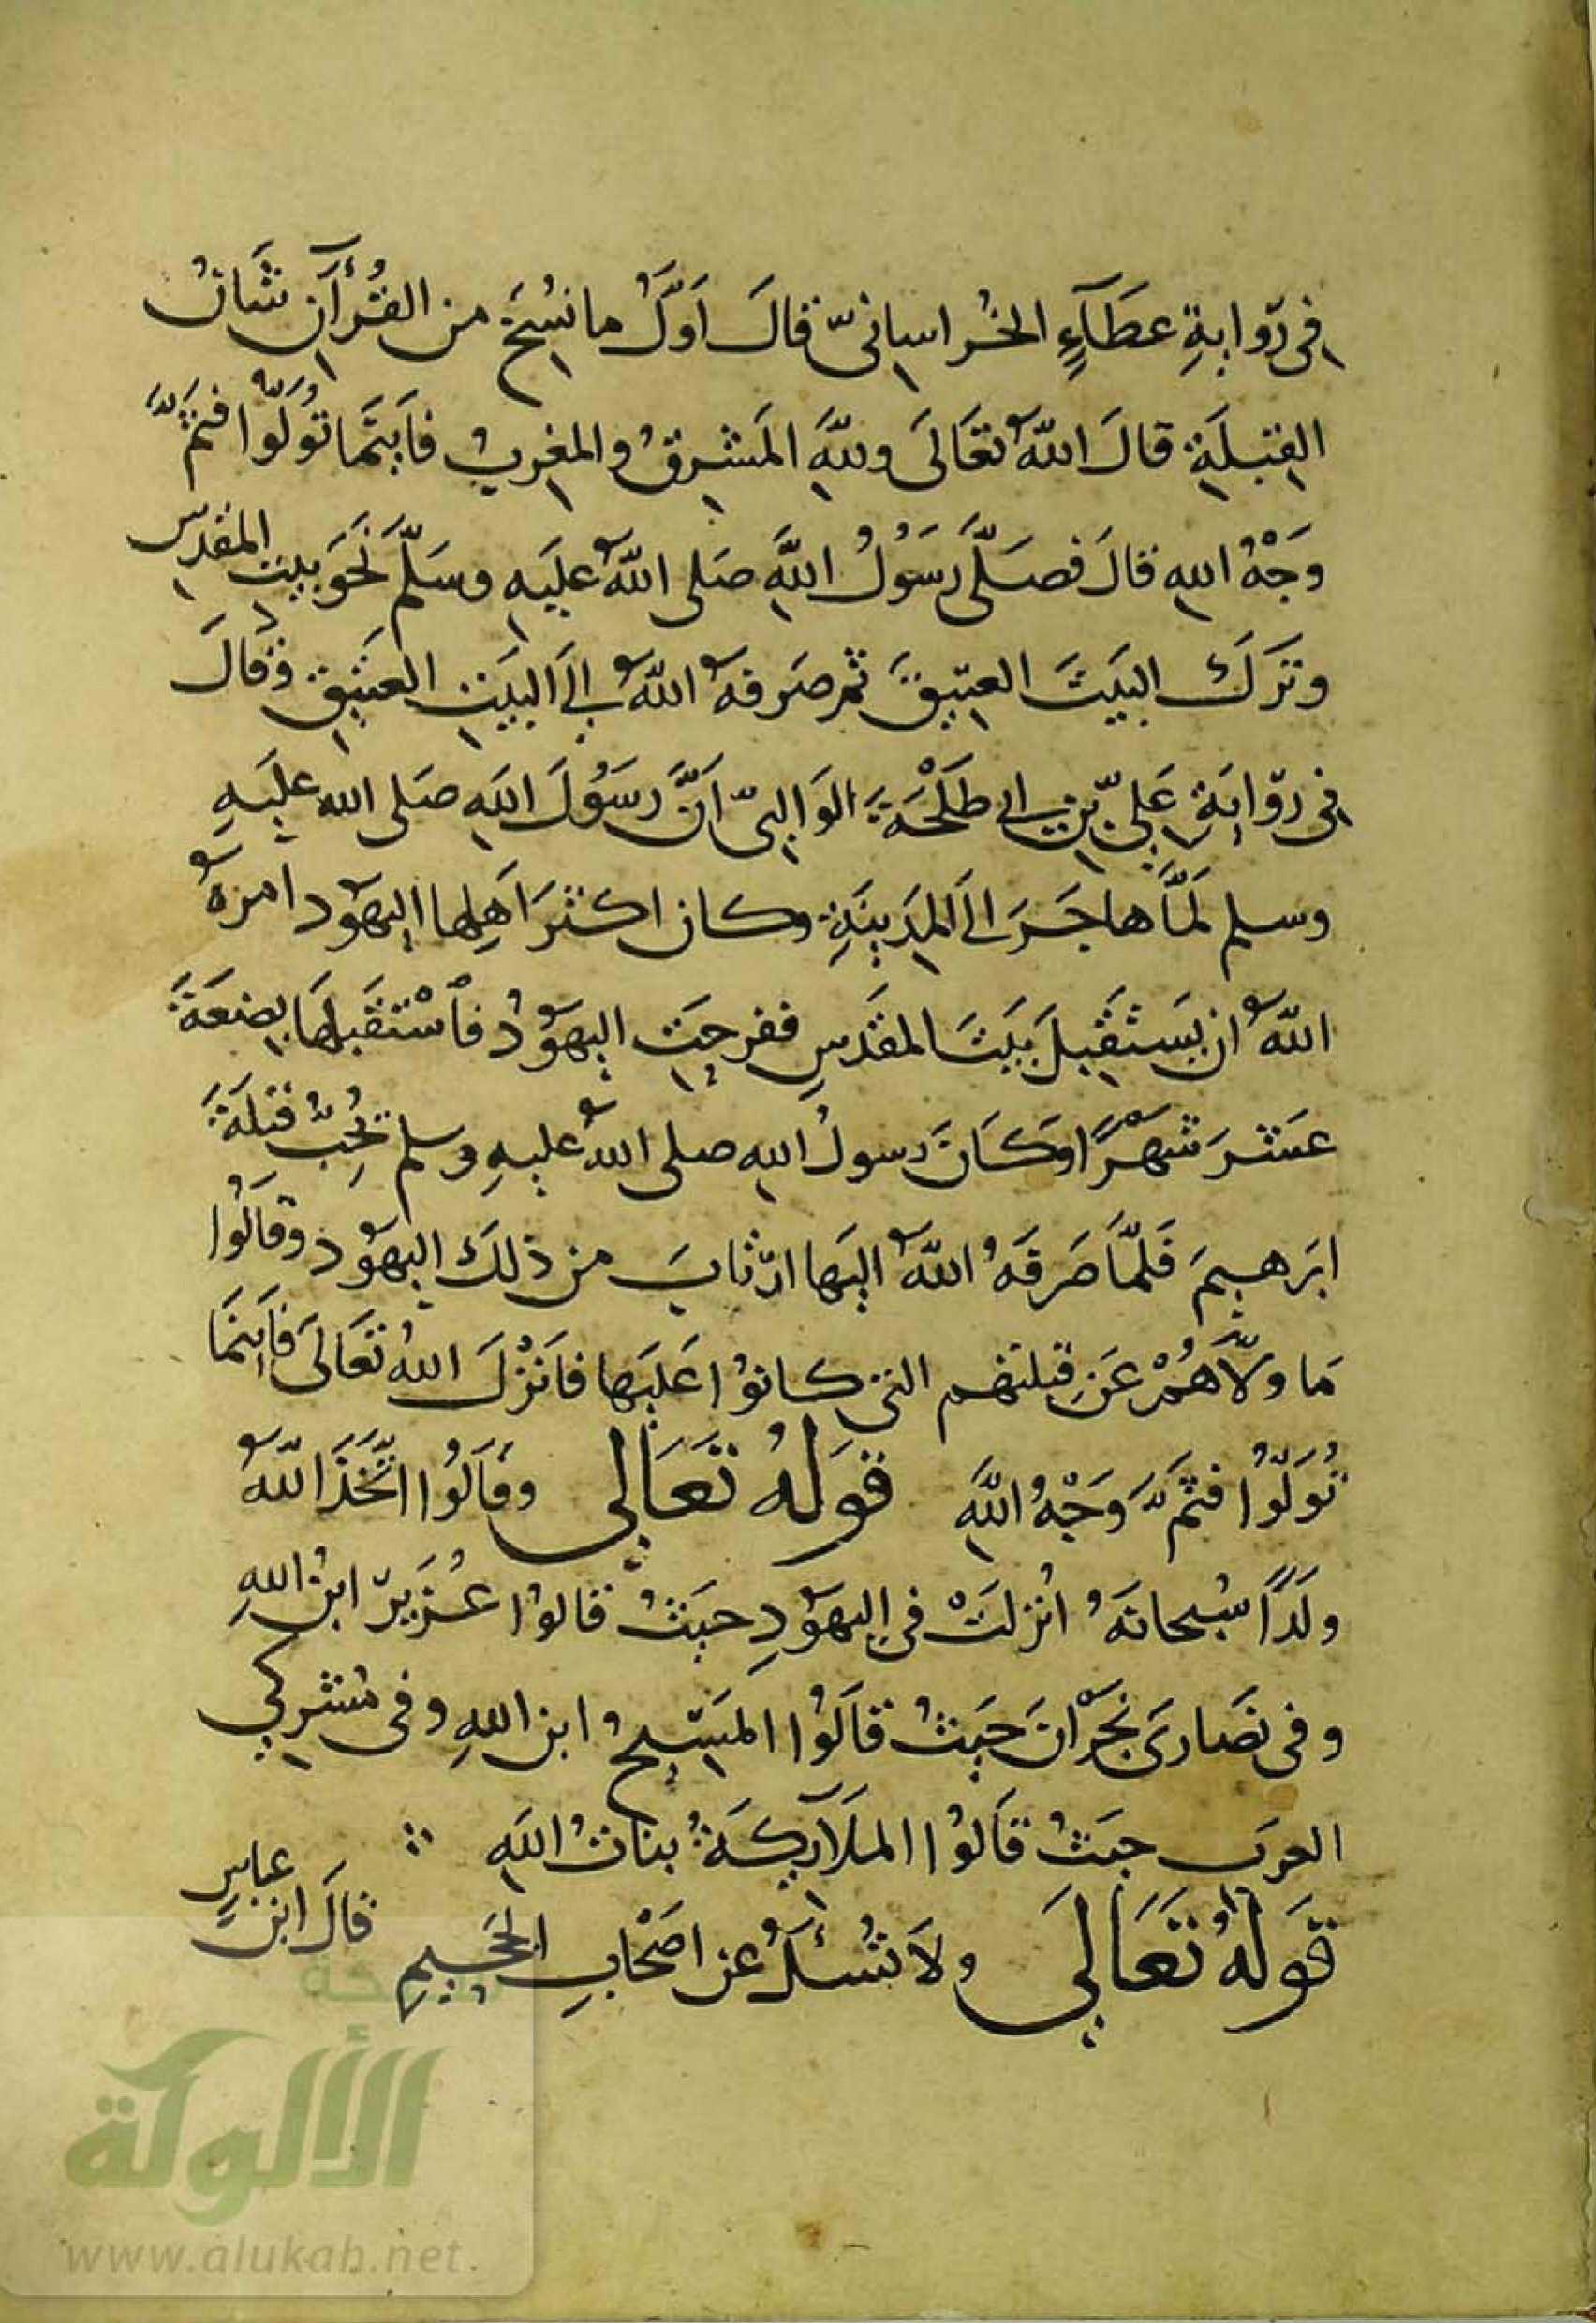 فى رِّوايةِ عطَآءٍ الخُراسانىّ قالَ اَوَّلُ ما نُسِخَ من القُرْآنِ شَانُ
القِبْلَةِ قالَ اللّٰهُ تَعَالَى وللّٰهِ المَشرِقُ والمغرِبُ فَاَيْنَمَا تُوَلُّوا فَثَمَّ
وَجْهُ اللهِ قالَ فصَلَّى رَسُوْلُ اللّٰهِ صَلى اللّٰهُ عليَهِ وسَلَّمَ نَحَوَ بيتِ المقدس
وتَرَكَ البَيتَ العتِيقَ ثم صَرفهُ اللّٰهُ اِلَى البَيتِ العتيقِ وَقالَ
فى رِّوايَةِ عَلىِّ بنِ ابى طَلْحَةَ الوَالِبىّ اَنَّ رَسُوْلَ اللهِ صَلى الله عليَهِ
وسلم لَمَّا هاجَرَ الىَ المدِينَةِ وكان اكثَرَ اَهلِها اليهَوُد امرهُ
اللّٰهُ ان يَستَقْبِلَ بَيتَ المقدَسِ ففرحِتِ اليهَوُدُ فاْسْتَقبَلهَا بِضعَةَ
عشَرَ شَهْرًا وَكَانَ رسولُ اللهِ صلى اللّٰهُ عليهِ وسلم يُحِبُّ قبلَةَ
ابرَهيمَ فَلمَّا صَرفَهُ اللّٰهُ اليَها ارْتابَ من ذلكَ اليهَوُد وقالُوا
مَا ولَّاهُمْ عَنِ قبلتهم التى كانوْا عَليَها فاَنْزلَ اللهُ تعَالىَ فاَينَمَا
تُوَلُّوْا فثمَّ وَجْهُ اللّٰهِ قوَلهُ تَعَالى وقَالُوْا اتَّخَذَ اللّٰهُ
ولَدًا سُبحانهُ انُزلتْ فى اليهَوُدِ حيَثُ قالوْا عُزيرّ ابنُ اللهِ
وفى نصَارىَ نجَرْانَ حيَثُ قاَلوُا المَسيِحُ ابن اللهِ وفى مُشرِكي
العرَبِ حيَثُ قاَلوْا الملَآئِكَةُ بناتُ اللهِ
قوَلهُ تَعَالىَ ولاَ تُسْئلُ عن اصَحْابِ الجَحيِمِ قالَ ابن عباسٍ
الألوكة
www.alukah.net